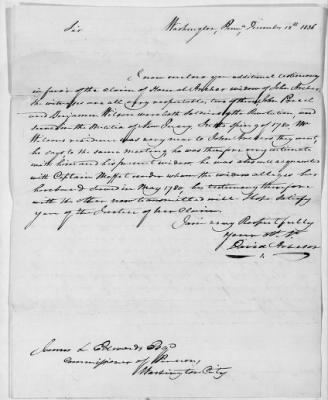 Washington, Penna, December 12th 1836
Sir
I now enclose you additional testimony
in favor of the claim of Hannah Archer widow of John Archer
the witnesses are all very respectable, two of them John
and Benjamin Wilson were both Soldiers of the Revolution, and
served in the Militia of New Jersey in the spring of 1780. Mr
Wilsons residence was very near to John Archers they went,
he says to the same Meeting he was therefore very intimate
with him and his present widow, he was also well acquainted
with Captain Moffet under whom the widow alleges her
husband served in May 1780, his testimony therefore
with the other now transmitted will I hope satisfy
you of the Justice of her Claim.
I am very Respectfully
Your
David Acheson
James L Edwards Esqr
Commissioner of Pensions,
Washington City